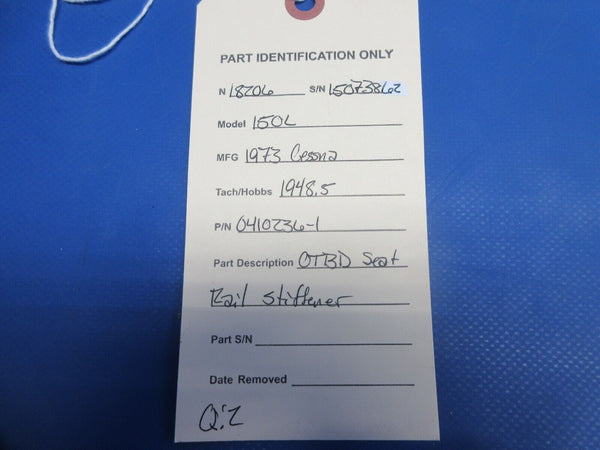 PART IDENTIFICATION ONLY
N 18206 S/N 15073862
Model 150L
MFG 1973 Cessna
Tach/Hobbs 1948.5
P/N 0410236-1
Part Description OTBD Seat
Rail stiffener
Part S/N
Date Removed
Q:2